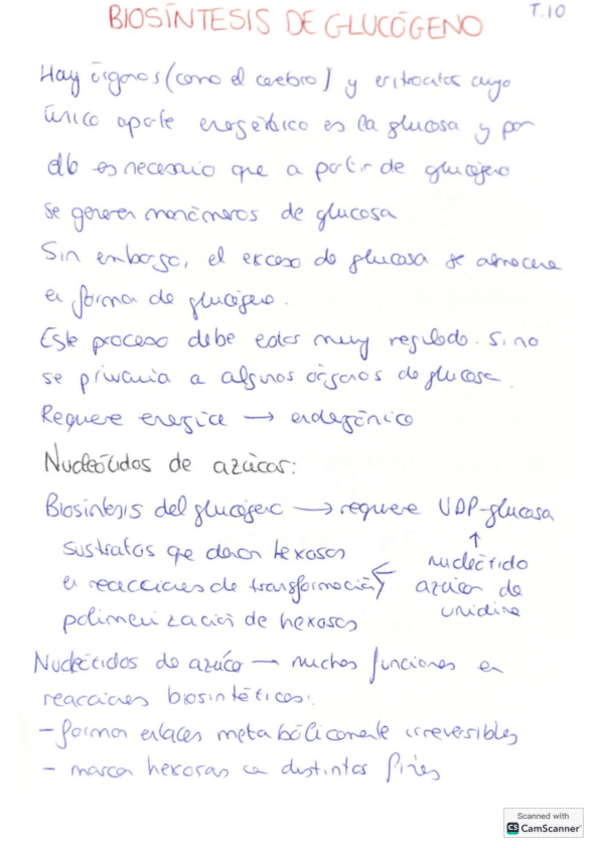 BIOSÍNTESIS DE GLUCÓGENO
T.10
Hay órganos (como el cerebro) y eritrocitos cuyo
único aporte energético es la glucosa y por
ello es necesario que a partir de glucógeno
se generen monómeros de glucosa
Sin embargo, el exceso de glucosa se almacena
en forma de glucógeno.
Este proceso debe estar muy regulado. Si no
se privaría a algunos órganos de glucosa.
Requiere energía → endergónico
Nucleótidos de azúcar:
Biosíntesis del glucógeno → requiere UDP-glucosa
↑
nucleótido
azúcar de
uridina
←
sustratos que donan hexosas
en reacciones de transformación y
polimerización de hexosas
Nucleótidos de azúcar → muchas funciones en
reacciones biosintéticas:
- forman enlaces metabólicamente irreversibles
- marca hexosas con distintos fines
Scanned with
CS CamScanner